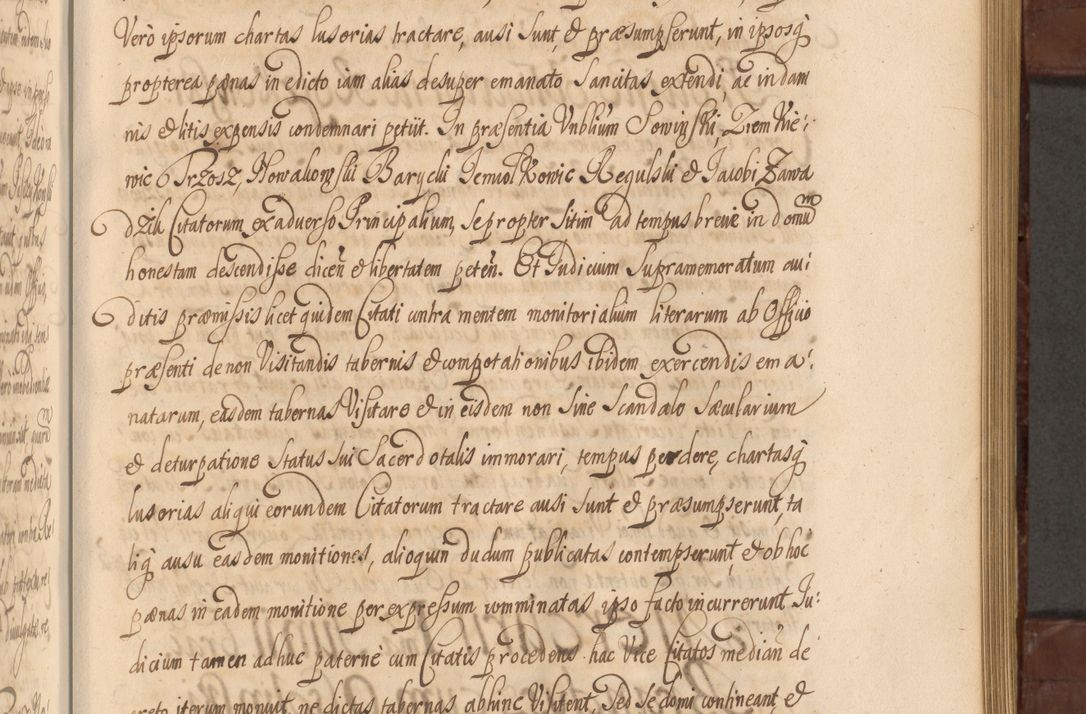 Vero ipsorum chartas lusorias tractare, ausi sunt, et præsumpserunt, in ipsosq́
propterea pænas in edicto iam alias desuper emanato sancitas extendi, ac in dam
nis et litis expensis condemnari petiit. In præsentia Vnbliũm Sowinski, Ziemkie:
wic Przosz, Nowakowskii Barycki Jemiolkowic Regulski et Jacobi Zawa
dzik Citatorum ex adverso Principalium, se propter sitim ad tempus breve in domũ
honestam descendisse diceñ et libertatem peteñ. Et Judicium supramemoratum au:
ditis præmissis licet quidem Citati contra mentem monitorialium literarum ab Officio
præsenti de non Visitandis tabernis et compotationibus ibidem exercendis ema:
natarum, easdem tabernas Visitare et in eisdem non sine scandalo sæcularium
et deturpatione status sui sacerdotalis immorari, tempus perdere, chartasq́
lusorias aliqui eorundem Citatorum tractare ausi sunt et præsumpserunt, ta
liq́ ausu easdem monitiones, alioquin dudum publicatas contempserunt, et ob hoc
pænas in eadem monitione per expressum comminatas ipso facto incurrerunt Ju:
dicium tamen adhuc paternè cum Citatis procedens hac Vice Citatos mediañ de
creto iterum monuit, ne dictas tabernas abhinc Visitent, sed se domi contineant, et